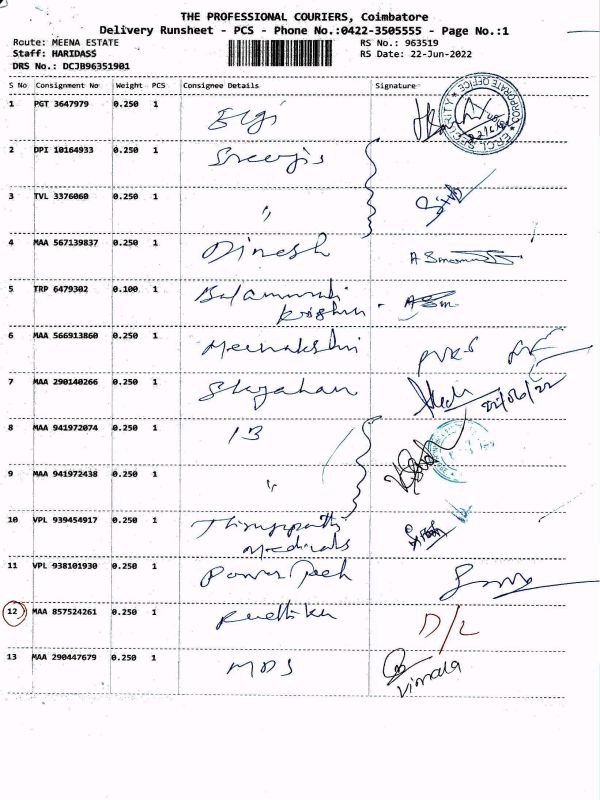 THE PROFESSIONAL COURIERS, Coimbatore
Delivery Runsheet - PCS - Phone No.:0422-3505555 - Page No.:1
Route: MEENA ESTATE RS No.: 963519
Staff: HARIDASS RS Date: 22-Jun-2022
DRS No.: DCJB96351901
S No Consignment No Weight PCS Consignee Details Signature
1 PGT 3647979 0.250 1 Elgi
2 DPI 10164933 0.250 1
3 TVL 3376060 0.250 1 "
4 MAA 567139837 0.250 1 Dinesh
5 TRP 6479302 0.100 1 Balamurali
Krishna
6 MAA 566913860 0.250 1 Meenakshi
7 MAA 290140266 0.250 1 Shajahan 22/06/22
8 MAA 941972074 0.250 1 13
9 MAA 941972438 0.250 1 "
10 VPL 939454917 0.250 1 Thiruppathi
Medicals
11 VPL 938101930 0.250 1 Power Tech
12 MAA 857524261 0.250 1 D/L
13 MAA 290447679 0.250 1 MDS
Vimala